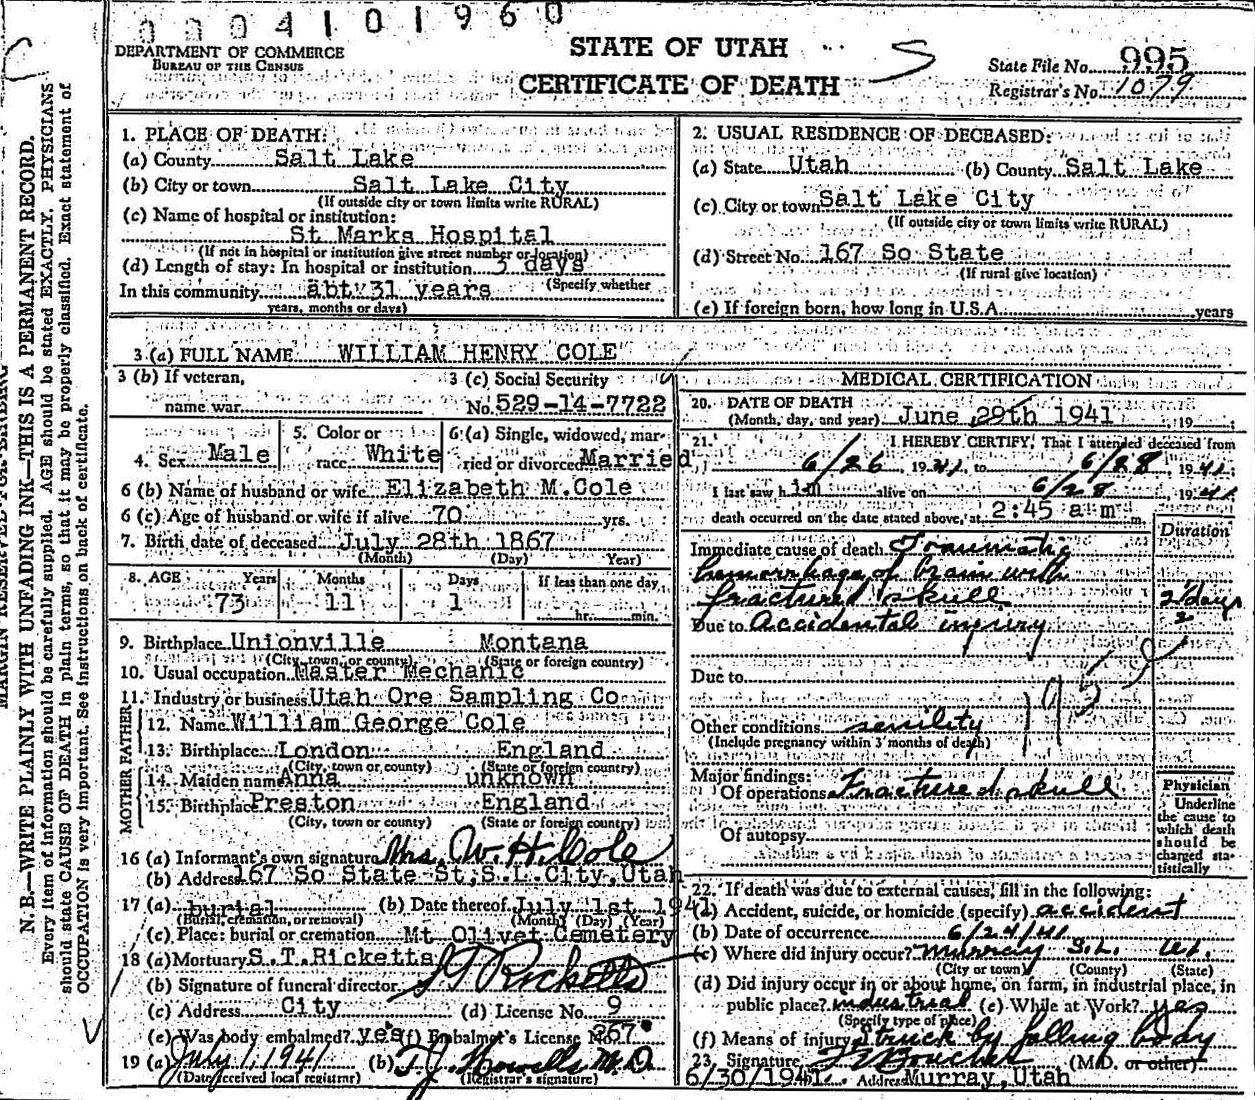 0004101960
DEPARTMENT OF COMMERCE
BUREAU OF THE CENSUS
STATE OF UTAH
CERTIFICATE OF DEATH
State File No. 995
Registrar's No. 1079
MARGIN RESERVED FOR BINDING
N. B.—WRITE PLAINLY WITH UNFADING INK—THIS IS A PERMANENT RECORD.
Every item of information should be carefully supplied. AGE should be stated EXACTLY. PHYSICIANS
should state CAUSE OF DEATH in plain terms, so that it may be properly classified. Exact statement of
OCCUPATION is very important. See instructions on back of certificate.
1. PLACE OF DEATH:
(a) County Salt Lake
(b) City or town Salt Lake City
(If outside city or town limits write RURAL)
(c) Name of hospital or institution:
St Marks Hospital
(If not in hospital or institution give street number or location)
(d) Length of stay: In hospital or institution days
(Specify whether
In this community abt 31 years
years, months or days)
2. USUAL RESIDENCE OF DECEASED:
(a) State Utah (b) County Salt Lake
(c) City or town Salt Lake City
(If outside city or town limits write RURAL)
(d) Street No. 167 So State
(If rural give location)
(e) If foreign born, how long in U.S.A. years
3 (a) FULL NAME WILLIAM HENRY COLE
3 (b) If veteran, 3 (c) Social Security
name war No. 529-14-7722
4. Sex Male 5. Color or race White 6 (a) Single, widowed, married or divorced Married
6 (b) Name of husband or wife Elizabeth M.Cole
6 (c) Age of husband or wife if alive 70 yrs.
7. Birth date of deceased July 28th 1867
(Month) (Day) Year)
8. AGE Years Months Days If less than one day
73 11 1 hr. min.
9. Birthplace Unionville Montana
(City, town, or county) (State or foreign country)
10. Usual occupation Master Mechanic
11. Industry or business Utah Ore Sampling Co
FATHER
12. Name William George Cole
13. Birthplace London England
(City, town or county) (State or foreign country)
MOTHER
14. Maiden name Anna unknown
15. Birthplace Preston England
(City, town or county) (State or foreign country)
16 (a) Informant's own signature Mrs. W. H. Cole
(b) Address 167 So State St, S.L.City, Utah
17 (a) burial (b) Date thereof July 1st 1941
(Burial, cremation, or removal) (Month) (Day) (Year)
(c) Place: burial or cremation Mt Olivet Cemetery
18 (a) Mortuary S.T.Ricketts
(b) Signature of funeral director S T Ricketts
(c) Address City (d) License No. 9
(e) Was body embalmed? yes (f) Embalmer's License No. 267
19 (a) July 1, 1941 (b) T.J. Howells M.D.
(Date received local registrar) (Registrar's signature)
MEDICAL CERTIFICATION
20. DATE OF DEATH
(Month, day, and year) June 29th 1941 19
21. I HEREBY CERTIFY, That I attended deceased from
6/26, 1941, to 6/28, 1941,
I last saw him alive on 6/28, 1941
death occurred on the date stated above, at 2:45 a m m.
Duration
Immediate cause of death Traumatic
hemorrhage of brain with
fractured skull 2 1/2 days
Due to Accidental injury
Due to
195
Other conditions senility
(Include pregnancy within 3 months of death)
Major findings:
Of operations Fractured skull
Of autopsy
Physician
Underline
the cause to
which death
should be
charged sta-
tistically
22. If death was due to external causes, fill in the following:
(a) Accident, suicide, or homicide (specify) accident
(b) Date of occurrence 6/24/41
(c) Where did injury occur? Murray S.L. Ut.
(City or town) (County) (State)
(d) Did injury occur in or about home, on farm, in industrial place, in
public place? industrial (e) While at Work? yes
(Specify type of place)
(f) Means of injury Struck by falling body
23. Signature (M.D. or other)
6/30/1941 Address Murray, Utah